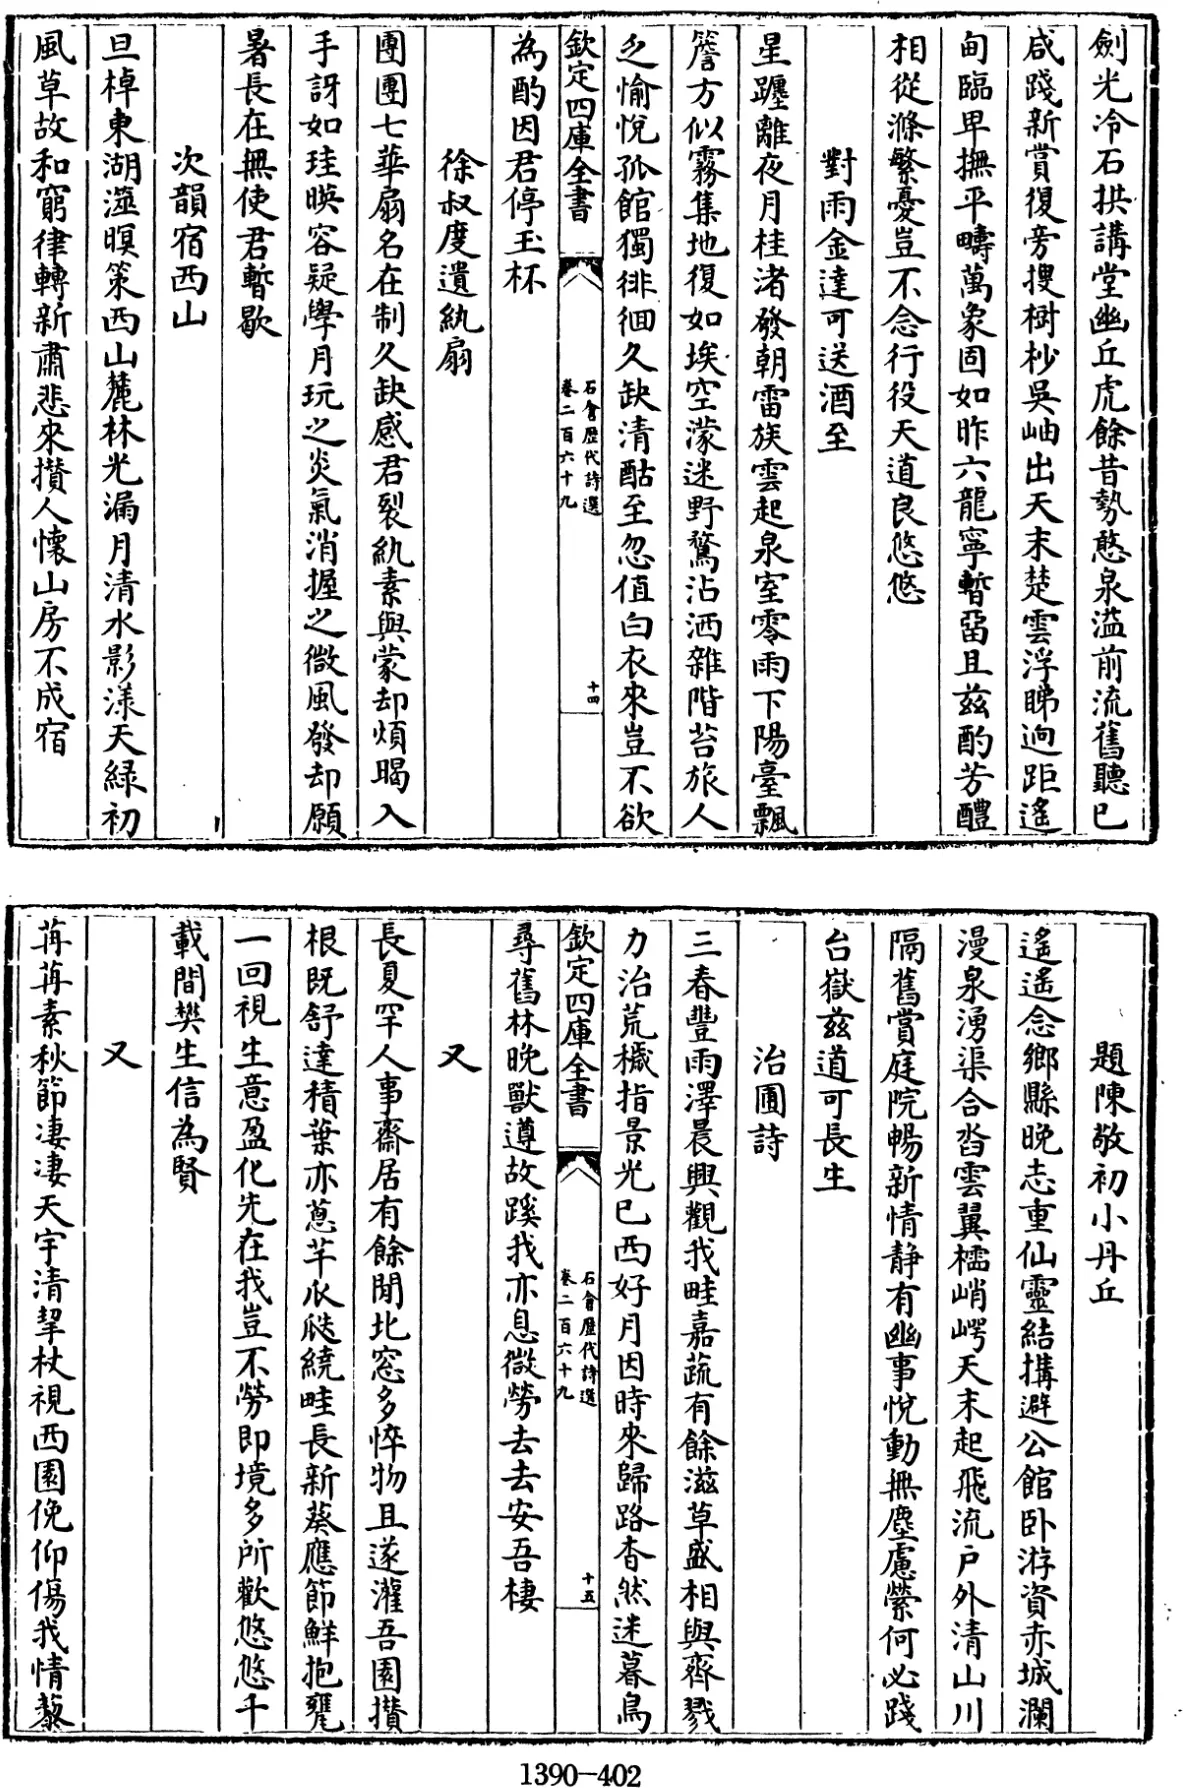 劍光冷石拱講堂幽丘虎餘昔勢憨泉溢前流舊聽已
咸踐新賞復旁搜樹杪吳岫出天末楚雲浮睇逈距遙
甸臨卑撫平疇萬象固如昨六龍寧暫留且兹酌芳醴
相從滌繁憂豈不念行役天道良悠悠
對雨金達可送酒至
星躔離夜月桂渚發朝雷族雲起泉室零雨下陽臺飄
簷方似霧集地復如埃空濛迷野騖沾洒雜階苔旅人
乏愉悅孤館獨徘徊久缺清酤至忽值白衣來豈不欲
欽定四庫全書
石倉歷代詩選
卷二百六十九
十四
為酌因君停玉杯
徐叔度遺紈扇
團團七華扇名在制久缺感君裂紈素與蒙却煩暍入
手訝如珪暎容疑學月玩之炎氣消握之微風發却願
暑長在無使君暫歇
次韻宿西山
旦棹東湖澨暝策西山麓林光漏月清水影漾天綠初
風草故和窮律轉新肅悲來攢人懷山房不成宿
題陳敬初小丹丘
遙遙念鄉縣晚志重仙靈結搆避公館卧游資赤城瀾
漫泉湧渠合沓雲翼櫺峭崿天末起飛流户外清山川
隔舊賞庭院暢新情静有幽事悅動無塵慮縈何必踐
台嶽兹道可長生
治圃詩
三春豐雨澤晨興觀我畦嘉蔬有餘滋草盛相與齊戮
力治荒穢指景光已西好月因時來歸路杳然迷暮鳥
欽定四庫全書
石倉歷代詩選
卷二百六十九
十五
尋舊林晚獸遵故蹊我亦息微勞去去安吾棲
又
長夏罕人事齋居有餘閒北窓多悴物且遂灌吾園攢
根既舒達積葉亦蔥芊瓜瓞繞畦長新葵應節鮮抱甕
一回視生意盈化先在我豈不勞即境多所歡悠悠千
載間樊生信為賢
又
苒苒素秋節凄凄天宇清挈杖視西園俛仰傷我情藜
1390—402